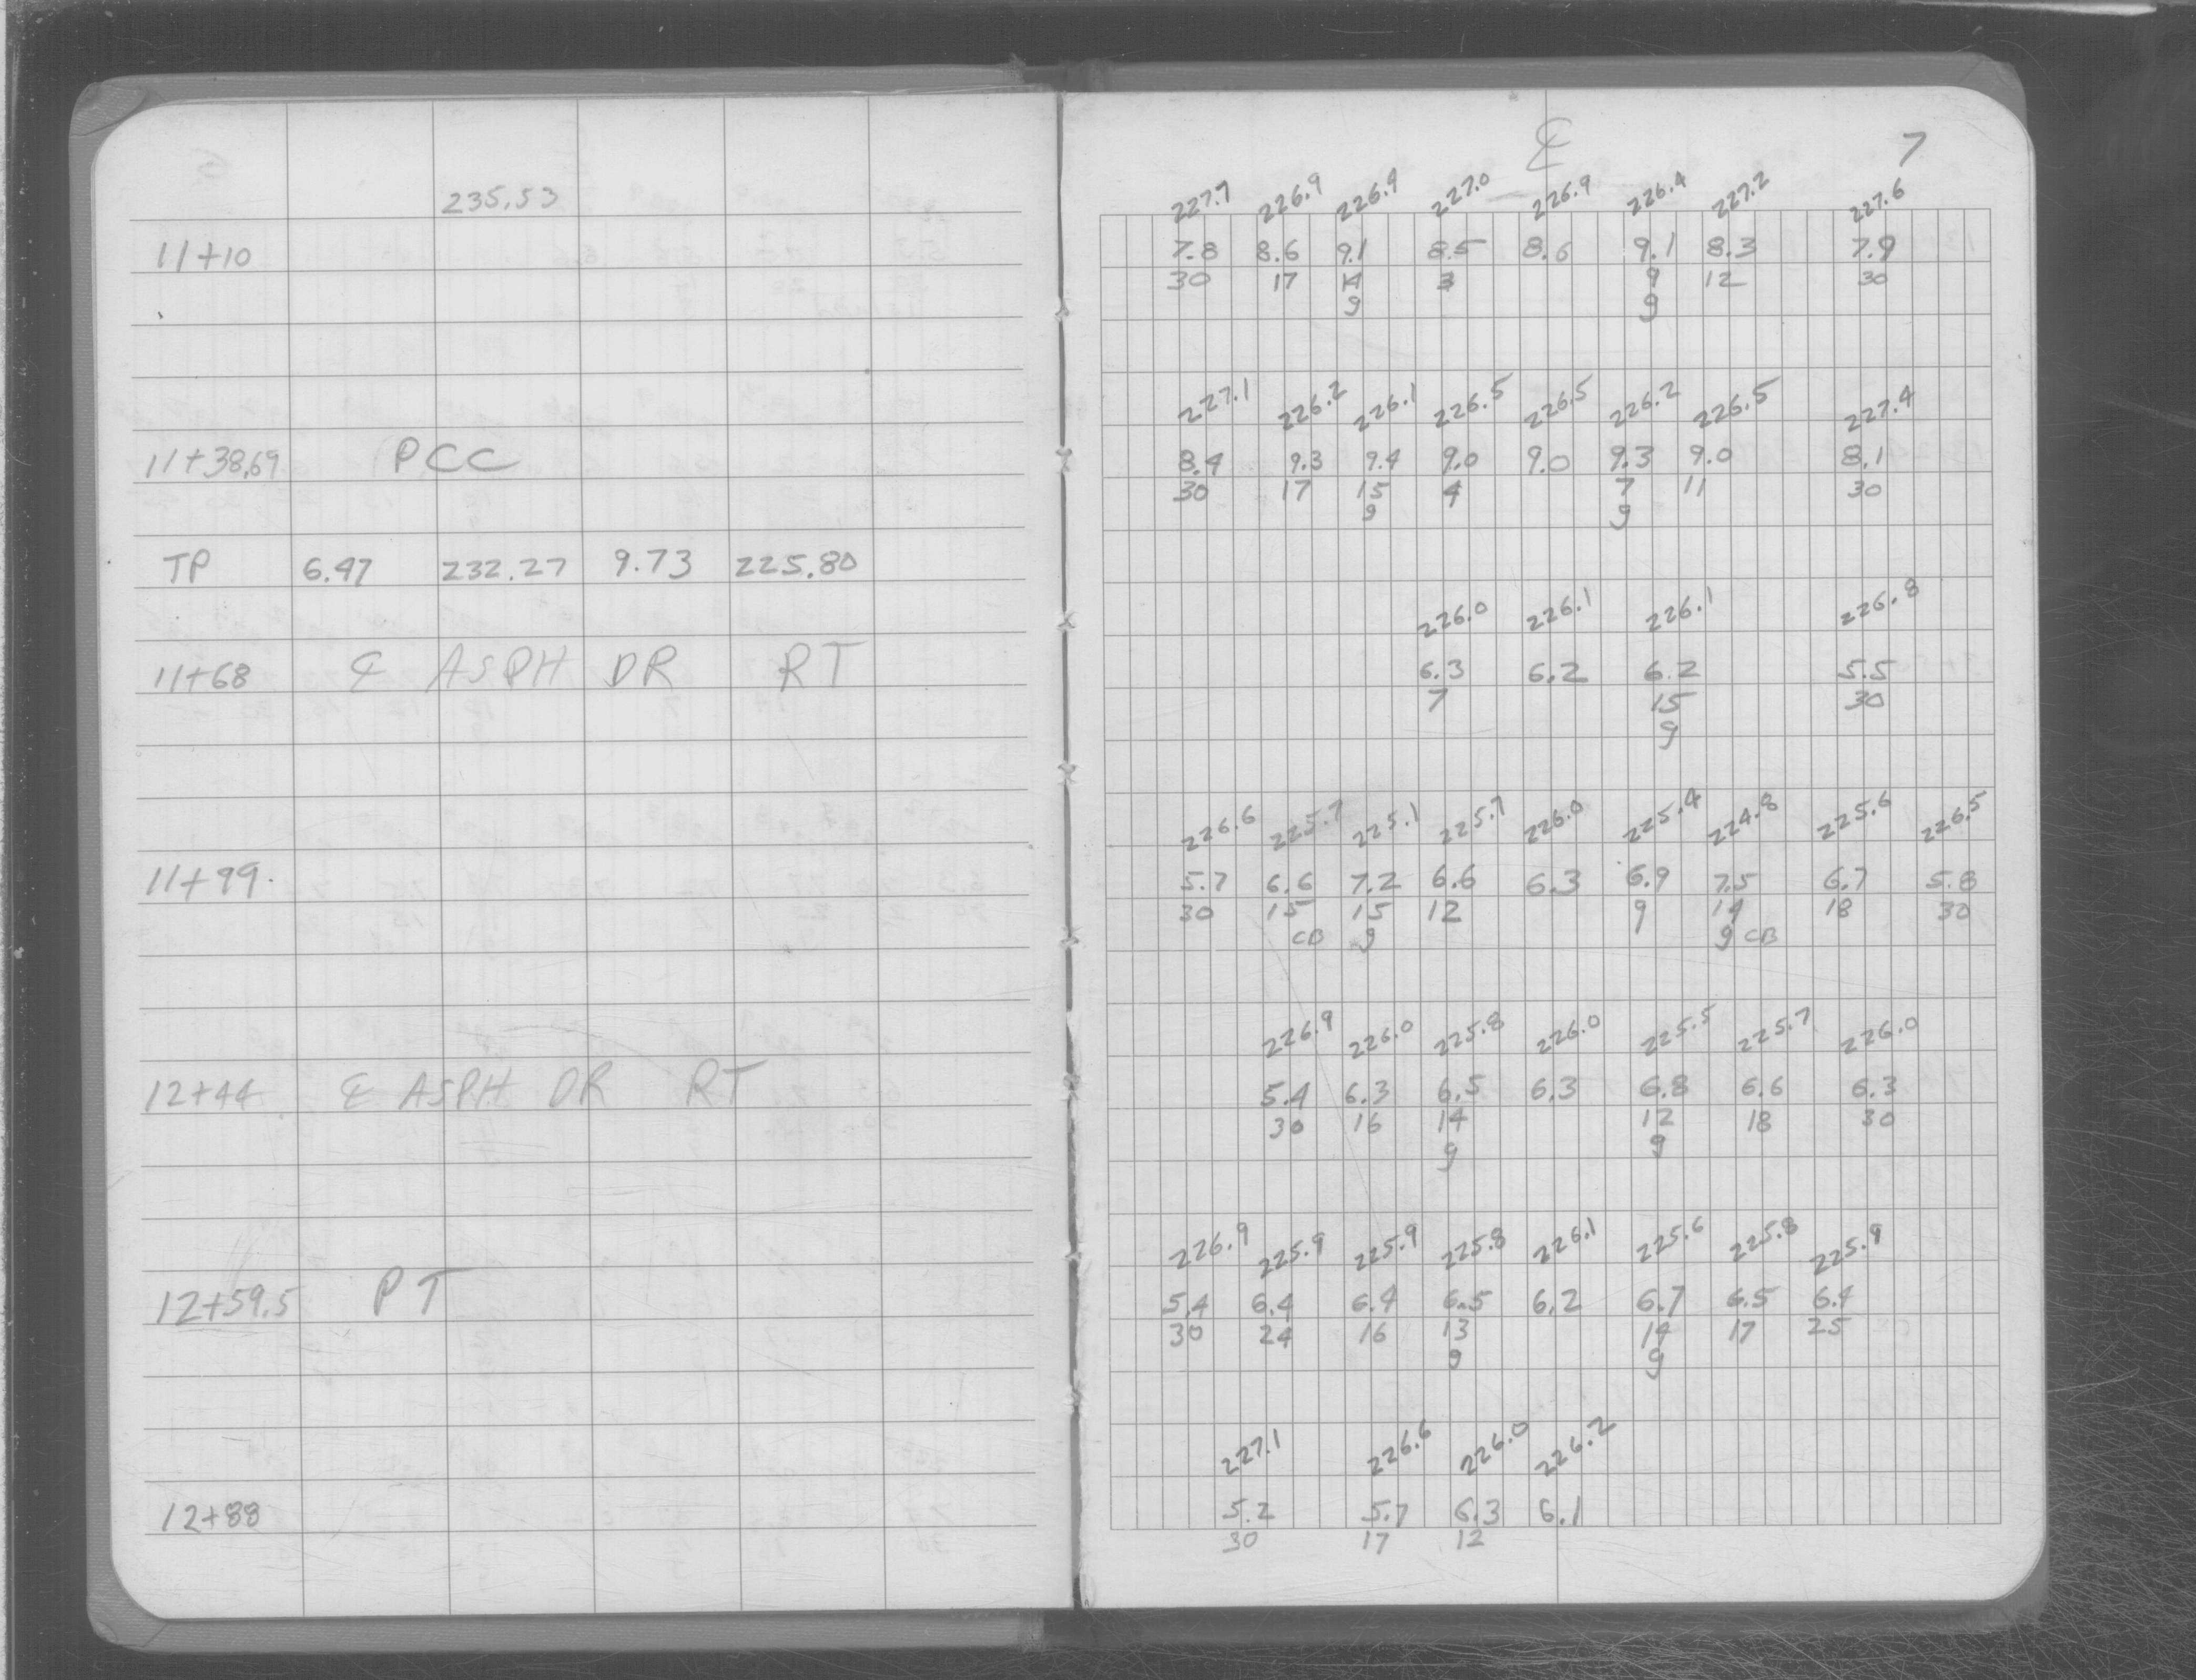 235.53
11+10
11+38.69 PCC
TP 6.47 232.27 9.73 225.80
11+68 ℄ ASPH DR RT
11+99.
12+44 ℄ ASPH DR RT
12+59.5 PT
12+88
℄ 7
227.7 226.9 226.4 227.0 226.9 226.4 227.2 227.6
7.8 8.6 9.1 8.5 8.6 9.1 8.3 7.9
30 17 14 3 9 12 30
g g
227.1 226.2 226.1 226.5 226.5 226.2 226.5 227.4
8.4 9.3 9.4 9.0 9.0 9.3 9.0 8.1
30 17 15 4 7 11 30
g g
226.0 226.1 226.1 226.8
6.3 6.2 6.2 5.5
7 15 30
g
226.6 225.7 225.1 225.7 226.0 225.4 224.8 225.6 226.5
5.7 6.6 7.2 6.6 6.3 6.9 7.5 6.7 5.8
30 15 15 12 9 14 18 30
CB g g CB
226.9 226.0 225.8 226.0 225.5 225.7 226.0
5.4 6.3 6.5 6.3 6.8 6.6 6.3
30 16 14 12 18 30
g g
226.9 225.9 225.9 225.8 226.1 225.6 225.8 225.9
5.4 6.4 6.4 6.5 6.2 6.7 6.5 6.4
30 24 16 13 14 17 25
g g
227.1 226.6 226.0 226.2
5.2 5.7 6.3 6.1
30 17 12